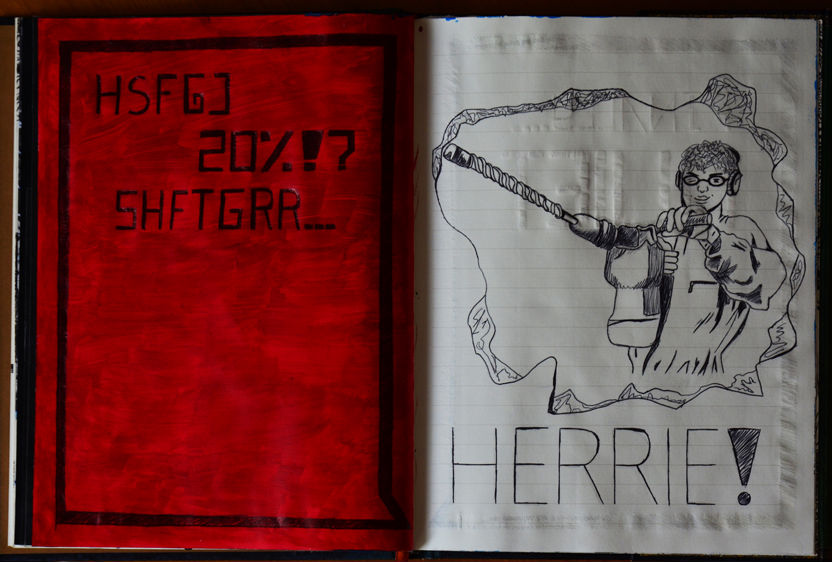 HSFGJ
20%!?
SHFTGRR...
HERRIE!